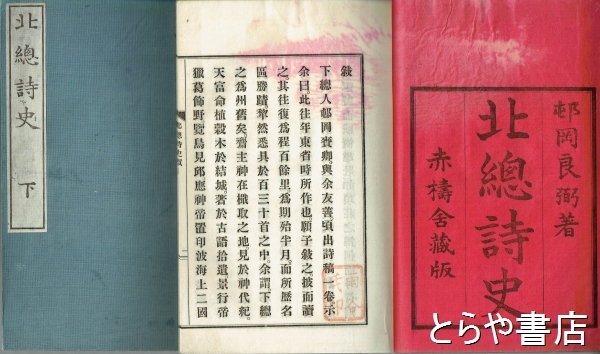 北總詩史 下
敍
下總人邨岡賚卿。與余友善。頃出詩稿一卷示
余曰。此往年東省時所作也。願子敍之。披而讀
之。其往復爲程百餘里。爲期殆半月。而所歷名
區勝蹟。犂然悉具於百三十首之中。余謂。下總
之爲州舊矣。齋主神在檝取之地。見於神代紀。
天富命植穀木於結城。著於古語拾遺。景行帝
獵葛飾野。覽鳥見邱。應神帝置印波海上二國
邨岡良弼著
北總詩史
赤檮舍藏版
とらや書店